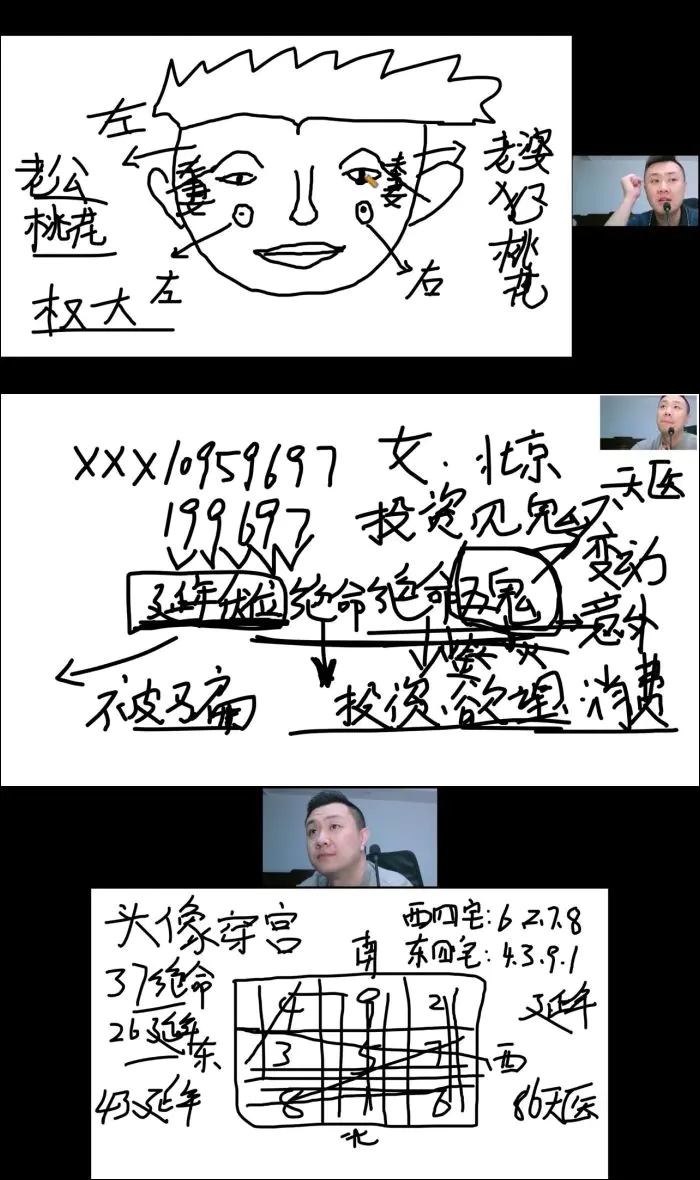 左
老公
桃花
权大
妻妾
妻妾
左
右
老婆
犯
桃
花
XXX10959697 女. 北京
199697 投资见鬼 天医
延年伏位绝命绝命五鬼 变动
意外
不被骗 投资.欲望.消费
头像穿宫 西四宅:6.2.7.8
南 东四宅:4.3.9.1
37绝命
26延年
4 9 2 延年
东 3 5 7 西
43延年 8 1 6 86天医
北